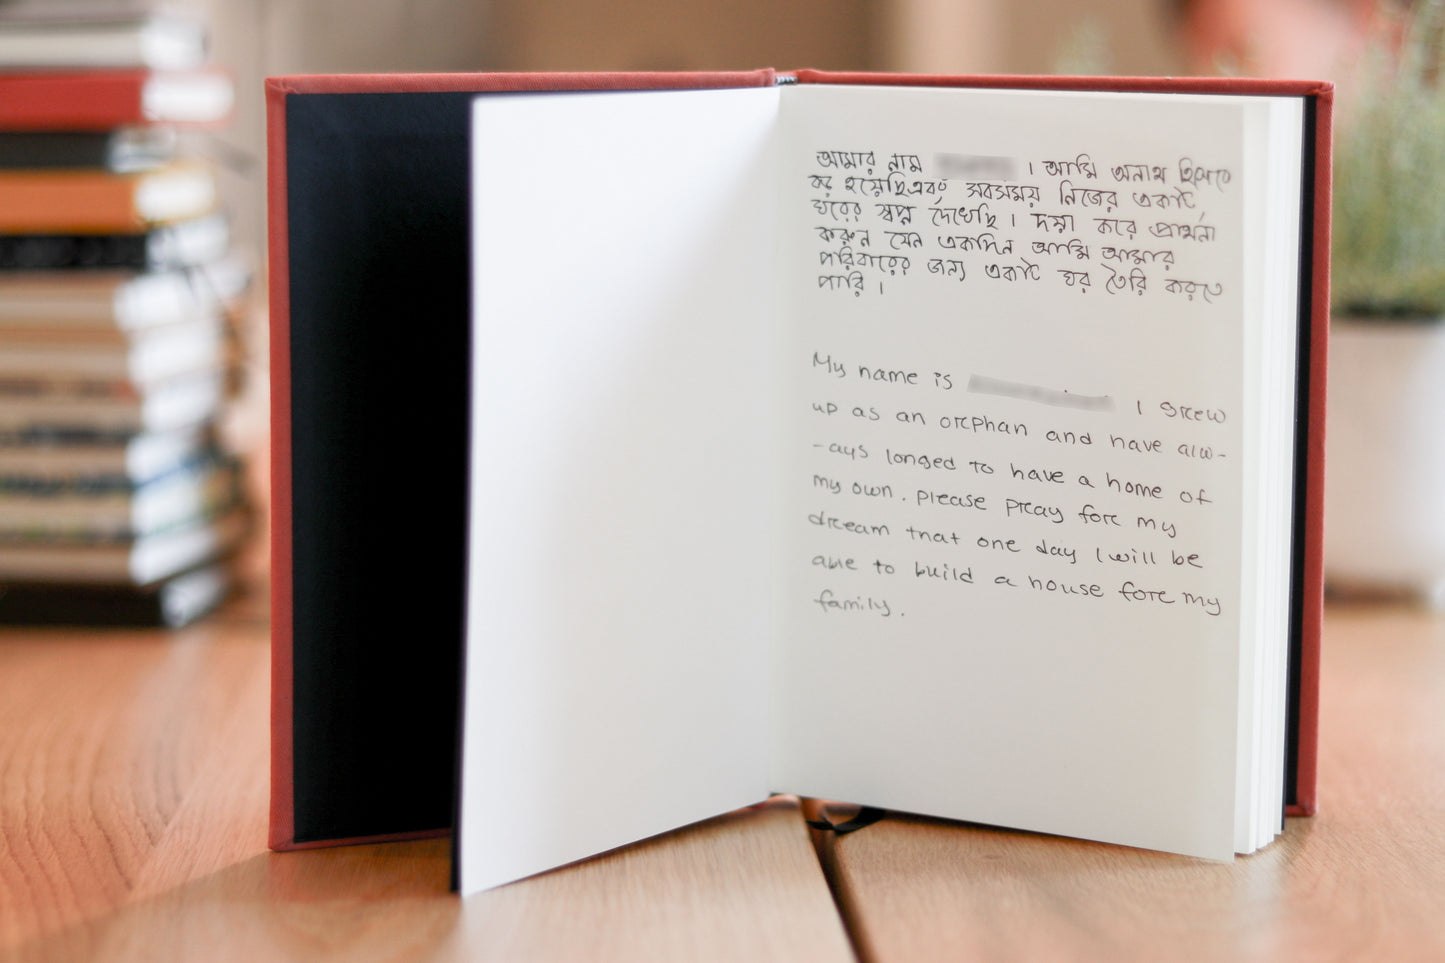 আমার নাম । আমি অনাথ হিসেবে
বড় হয়েছি এবং সবসময় নিজের একটি
ঘরের স্বপ্ন দেখেছি । দয়া করে প্রার্থনা
করুন যেন একদিন আমি আমার
পরিবারের জন্য একটি ঘর তৈরি করতে
পারি ।
My name is I grew
up as an orphan and have alw-
-ays longed to have a home of
my own. please pray for my
dream that one day I will be
able to build a house for my
family.